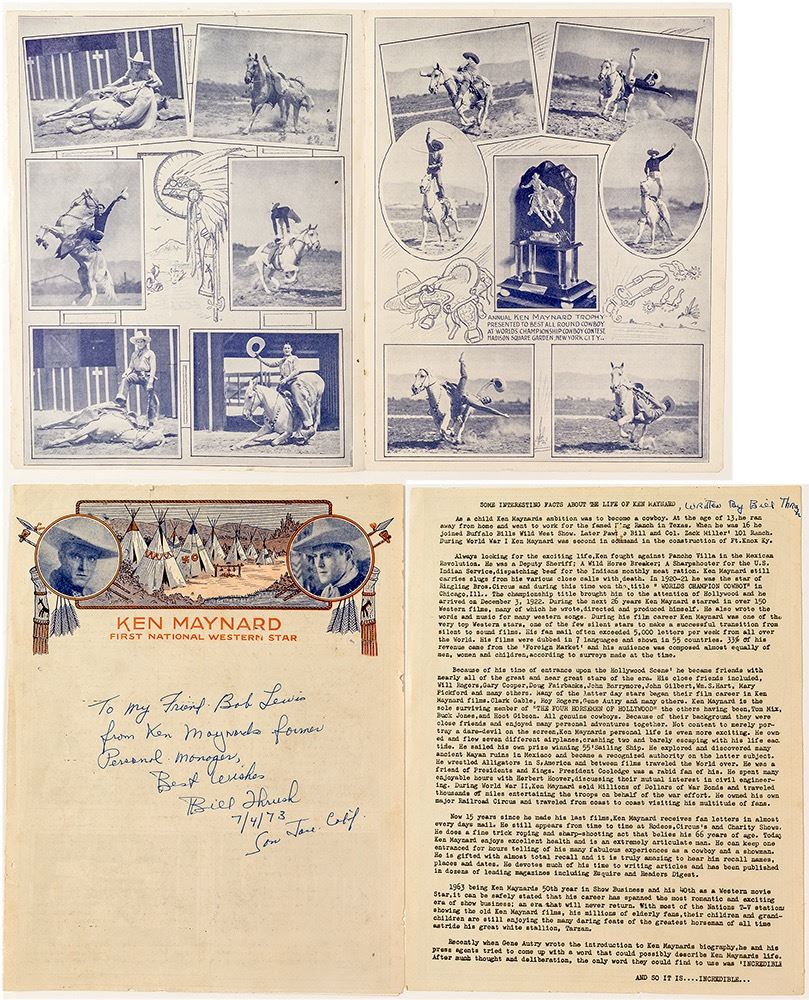 ANNUAL KEN MAYNARD TROPHY
PRESENTED TO BEST ALL ROUND COWBOY
AT WORLDS CHAMPIONSHIP COWBOY CONTEST
MADISON SQUARE GARDEN, NEW YORK CITY..
KEN MAYNARD
FIRST NATIONAL WESTERN STAR
To my Friend Bob Lewis
from Ken Maynards former
Personal Manager,
Best wishes
Bill Thrush
7/4/73
San Jose Calif.
SOME INTERESTING FACTS ABOUT THE LIFE OF KEN MAYNARD, written By Bill
As a child Ken Maynards ambition was to become a cowboy. At the age of 13,he ran
away from home and went to work for the famed Ranch in Texas. When he was 16 he
joined Buffalo Bills Wild West Show. Later Bill and Col. Zack Miller' 101 Ranch.
During World War I Ken Maynard was second in command in the construction of Ft.Knox Ky.
Always looking for the exciting life,Ken fought against Pancho Villa in the Mexican
Revolution. He was a Deputy Sheriff; A Wild Horse Breaker; A Sharpshooter for the U.S.
Indian Service,dispatching beef for the Indians monthly meat ration. Ken Maynard still
carries slugs from his various close calls with death. In 1920-21 he was the star of
Ringling Bros.Circus and during this time won the title " WORLDS CHAMPION COWBOY" in
Chicago,Ill.. The championship title brought him to the attention of Hollywood and he
arrived on December 3, 1922. During the next 26 years Ken Maynard starred in over 150
Western films, many of which he wrote,directed and produced himself. He also wrote the
words and music for many western songs. During his film career Ken Maynard was one of the
very top Western stars, one of the few silent stars to make a successful transition from
silent to sound films. His fan mail often exceeded 5,000 letters per week from all over
the World. His films were dubbed in 7 languages and shown in 55 countries. 33% of his
revenue came from the 'Foreign Market' and his audience was composed almost equally of
men, women and children,according to surveys made at the time.
Because of his time of entrance upon the Hollywood Scene' he became friends with
nearly all of the great and near great stars of the era. His close friends included,
Will Rogers,Gary Cooper,Doug Fairbanks,John Barrymore,John Gilbert,Wm.S.Hart, Mary
Pickford and many others. Many of the latter day stars began their film career in Ken
Maynard films.Clark Gable, Roy Rogers,Gene Autry and many others. Ken Maynard is the
sole surviving member of "THE FOUR HORSEMEN OF HOLLYWOOD" the others having been,Tom Mix,
Buck Jones,and Hoot Gibson. All genuine cowboys. Because of their background they were
close friends and enjoyed many personal adventures together. Not content to merely por-
tray a dare-devil on the screen,Ken Maynards personal life is even more exciting. He own-
ed and flew seven different airplanes,crashing two and barely escaping with his life each
tide. He sailed his own prize winning 55'Sailing Ship. He explored and discovered many
ancient Mayan ruins in Mexico and became a recognized authority on the latter subject.
He wrestled Alligators in S.America and between films traveled the World over. He was a
friend of Presidents and Kings. President Cooledge was a rabid fan of his. He spent many
enjoyable hours with Herbert Hoover,discussing their mutual interest in civil engineer-
ing. During World War II,Ken Maynard sold Millions of Dollars of War Bonds and traveled
thousands of miles entertaining the troops on behalf of the war effort. He owned his own
major Railroad Circus and traveled from coast to coast visiting his multitude of fans.
Now 15 years since he made his last films,Ken Maynard receives fan letters in almost
every days mail. He still appears from time to time at Rodeos,Circus's and Charity Shows.
He does a fine trick roping and sharp-shooting act that belies his 66 years of age. Today
Ken Maynard enjoys excellent health and is an extremely articulate man. He can keep one
entranced for hours telling of his many fabulous experiences as a cowboy and a showman.
He is gifted with almost total recall and it is truly amazing to hear him recall names,
places and dates. He devotes much of his time to writing articles and has been published
in dozens of leading magazines including Esquire and Readers Digest.
1963 being Ken Maynards 50th year in Show Business and his 40th as a Western movie
Star,it can be safely stated that his career has spanned the most romantic and exciting
era of show business; an era that will never return. With most of the Nations T-V stations
showing the old Ken Maynard films, his millions of elderly fans,their children and grand-
children are still enjoying the many daring feats of the greatest horseman of all time
astride his great white stallion, Tarzan.
Recently when Gene Autry wrote the introduction to Ken Maynards biography,he and his
press agents tried to come up with a word that could possibly describe Ken Maynards life.
After much thought and deliberation, the only word they could find to use was 'INCREDIBLE
AND SO IT IS....INCREDIBLE...